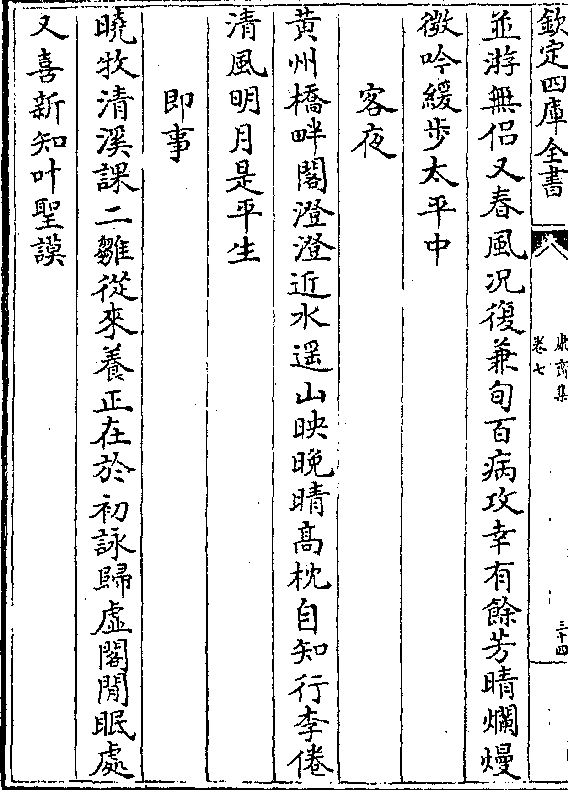 欽定四庫全書
康齋集
卷七
三十四
並游無侣又春風况復兼旬百病攻幸有餘芳晴爛熳
微吟緩步太平中
客夜
黄州橋畔閣澄澄近水遥山映晚晴高枕自知行李倦
清風明月是平生
即事
曉牧清溪課二雛從來養正在於初詠歸虚閣閒眠處
又喜新知叶聖謨